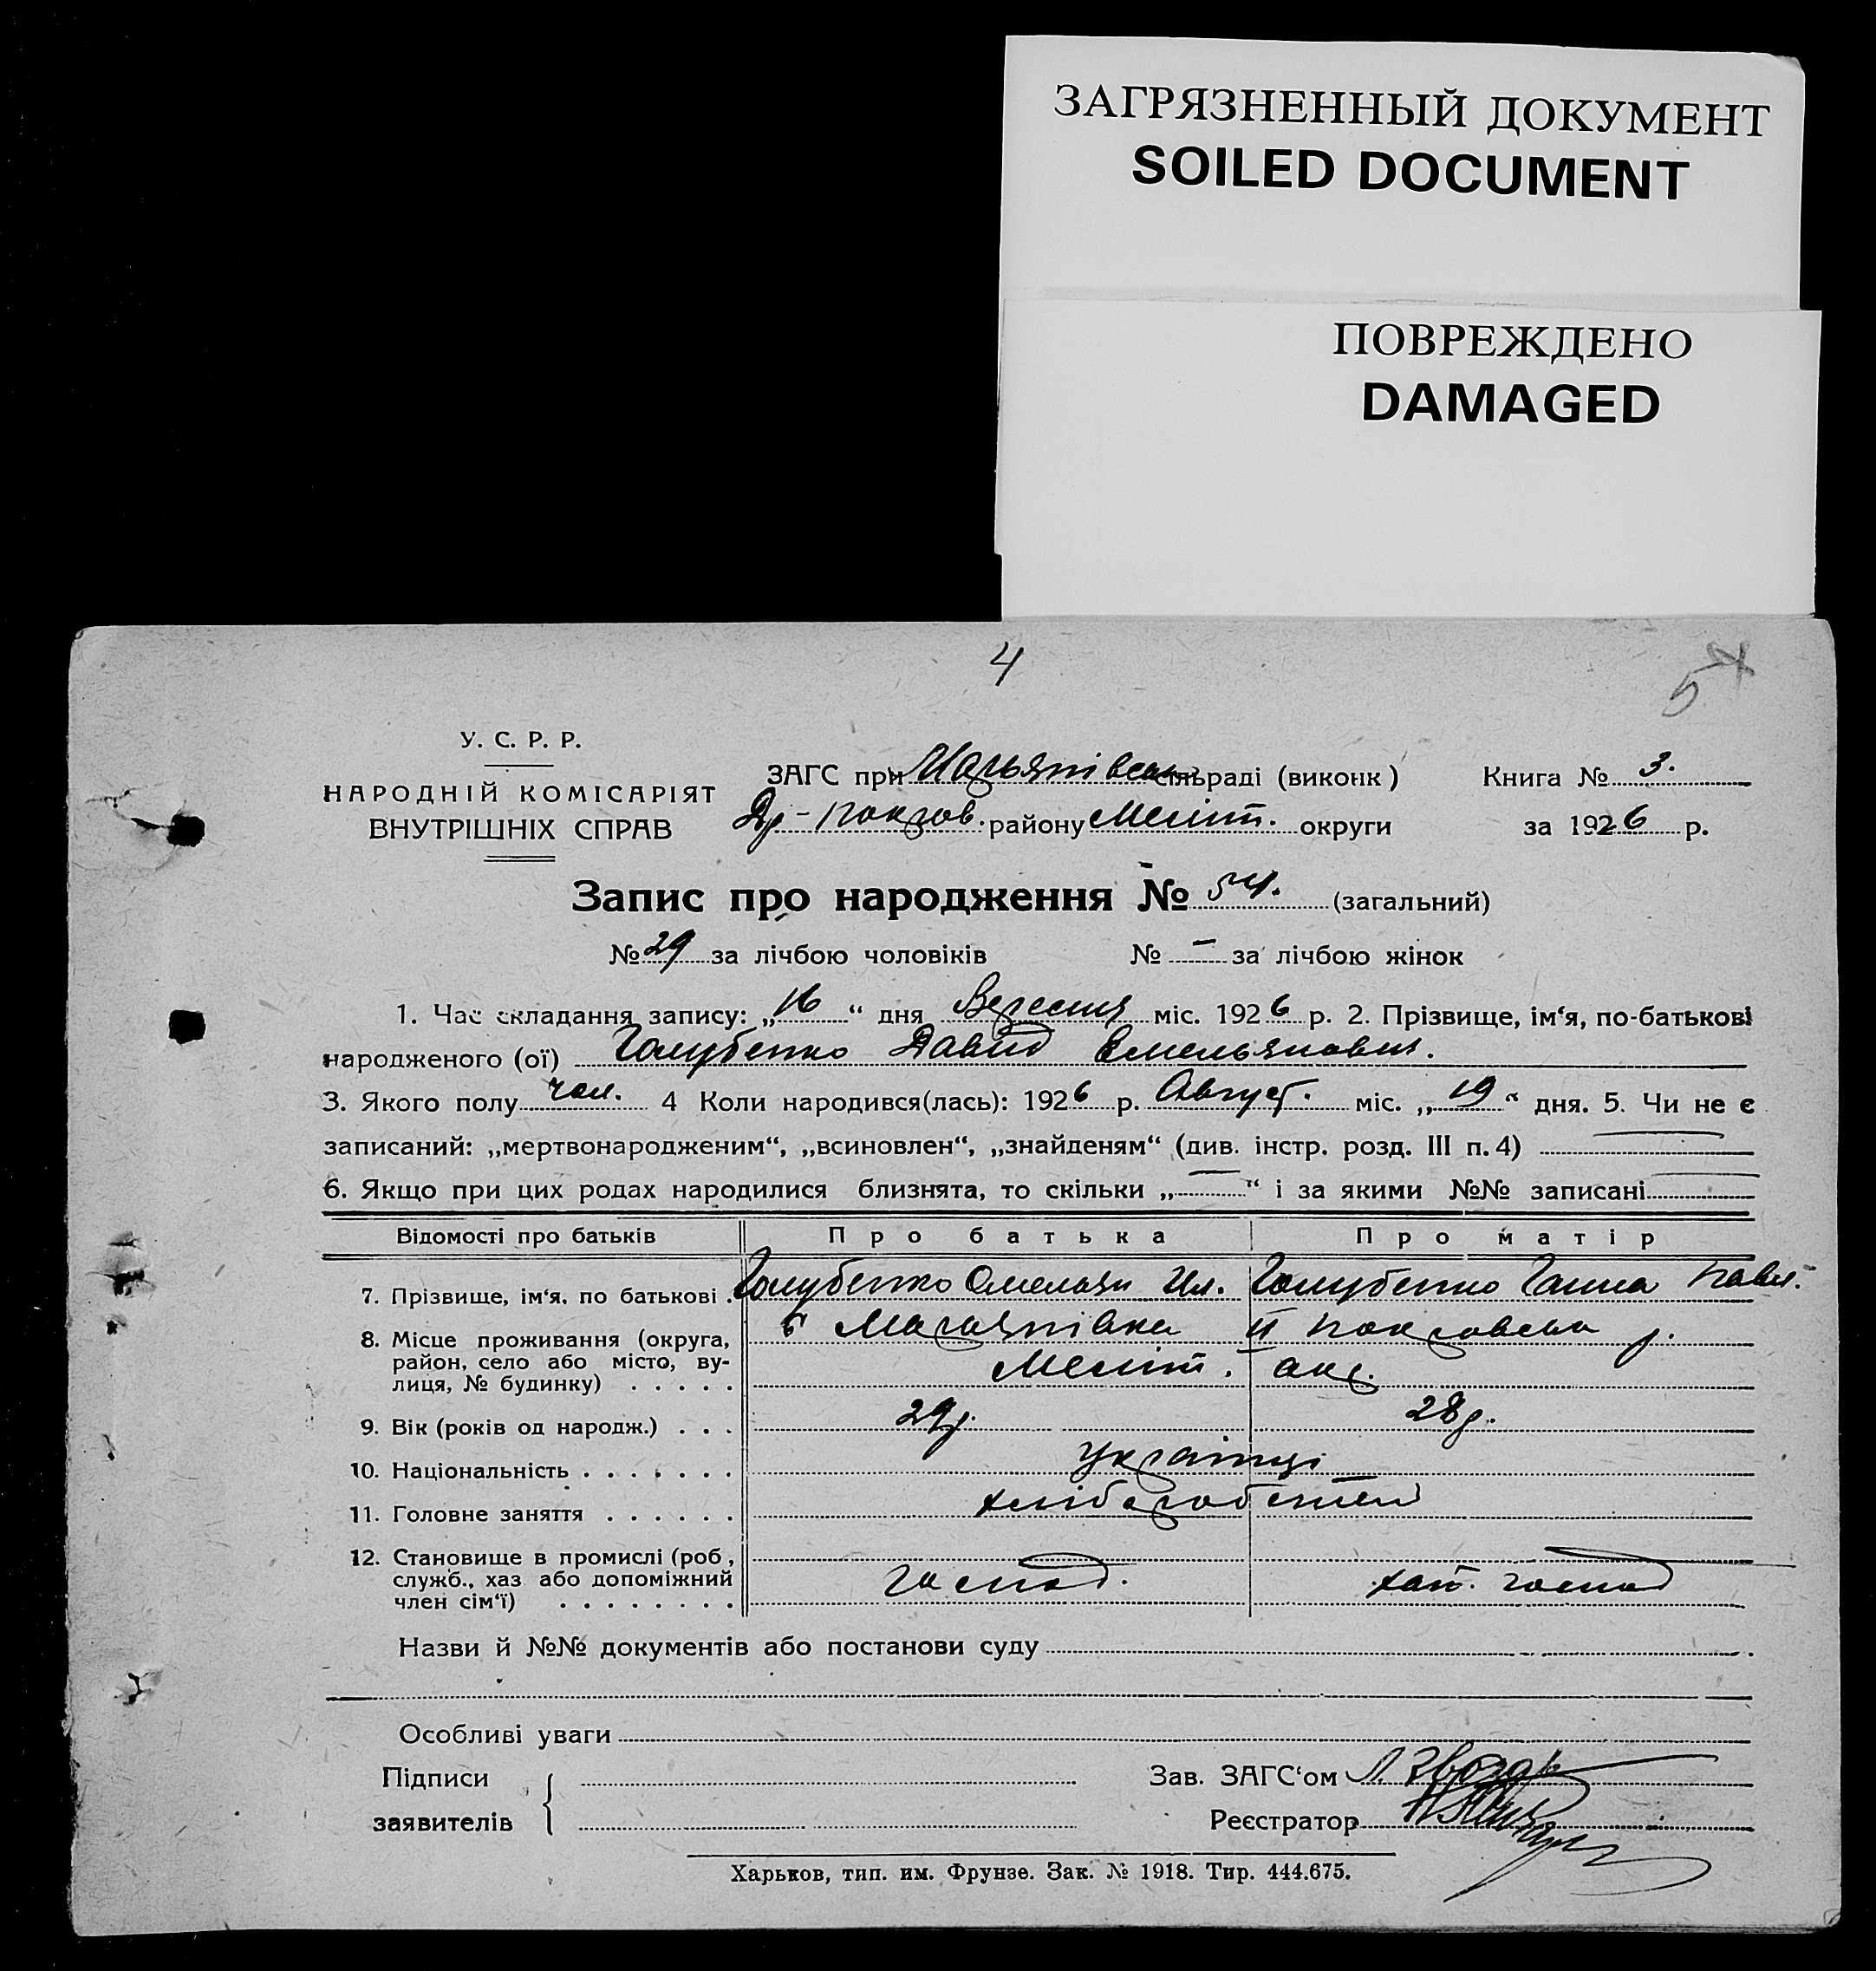 ЗАГРЯЗНЕННЫЙ ДОКУМЕНТ
SOILED DOCUMENT
ПОВРЕЖДЕНО
DAMAGED
4
5
У. С. Р. Р.
НАРОДНІЙ КОМІСАРІЯТ
ВНУТРІШНІХ СПРАВ
ЗАГС при Мар'янівськ сільраді (виконк) Книга № 3.
Др-Покров. району Меліт. округи за 1926 р.
Запис про народження № 54. (загальний)
№ 29 за лічбою чоловіків № — за лічбою жінок
1. Час складання запису: „16“ дня Вересня міс. 1926 р. 2. Прізвище, ім'я, по-батькові
народженого (ої) Голубенко Давид Емельянович.
3. Якого полу чол. 4 Коли народився(лась): 1926 р. Август. міс. „19“ дня. 5. Чи не є
записаний: „мертвонародженим“, „всиновлен“, „знайденям“ (див. інстр. розд. III п. 4) —
6. Якщо при цих родах народилися близнята, то скільки „—“ і за якими №№ записані —
Відомості про батьків Про батька Про матір
7. Прізвище, ім'я, по батькові . Голубенко Омельян Ил. Голубенко Ганна Павл.
8. Місце проживання (округа, район, село або місто, вулиця, № будинку) . . . . . Мар'янівка II Покровськ р.
Меліт. окр.
9. Вік (років од народж.) . . . 29 р. 28 р.
10. Національність . . . . . . . українці
11. Головне заняття . . . . . . хлібороб
12. Становище в промислі (роб, служб., хаз або допоміжний член сім'ї) . . . . . . . . господ. хат. господ
Назви й №№ документів або постанови суду
Особливі уваги
Підписи
заявителів
Зав. ЗАГС'ом
Реєстратор
Харьков, тип. им. Фрунзе. Зак. № 1918. Тир. 444.675.